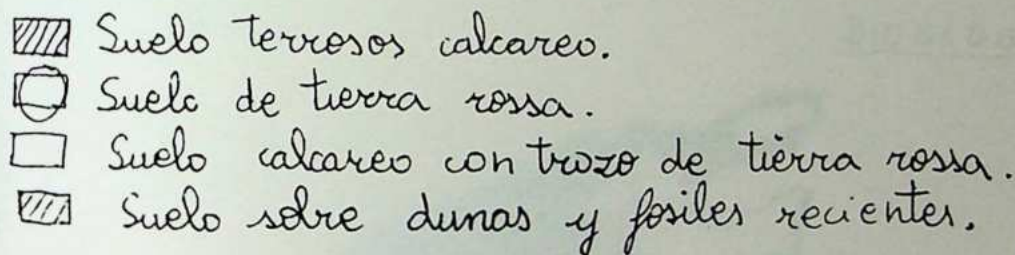 Suelo terrosos calcareo.
Suelo de tierra rossa.
Suelo calcareo con trozo de tierra rossa.
Suelo sobre dunas y fosiles recientes.